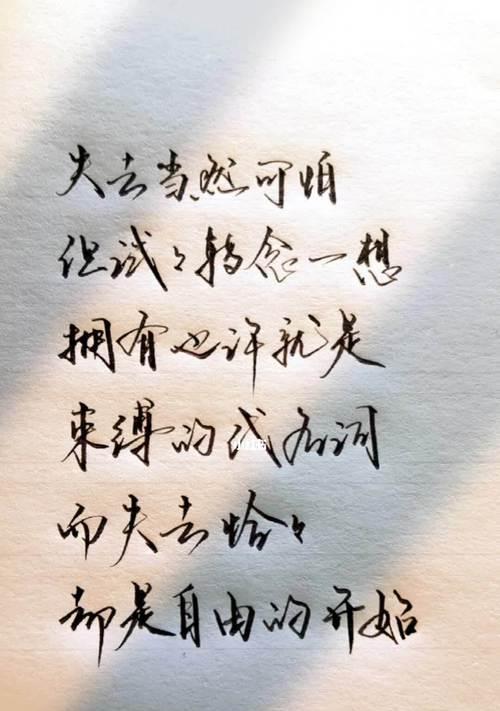 失去当然可怕
但试々转念一想
拥有也许就是
束缚的代名词
而失去恰々
却是自由的开始